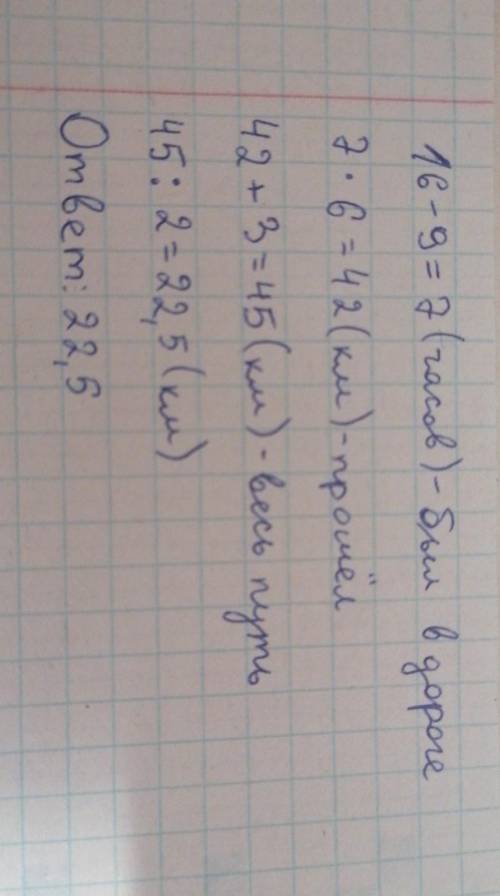 16 - 9 = 7 (часов) - был в дороге
7 · 6 = 42 (км) - прошёл
42 + 3 = 45 (км) - весь путь
45 : 2 = 22,5 (км)
Ответ: 22,5